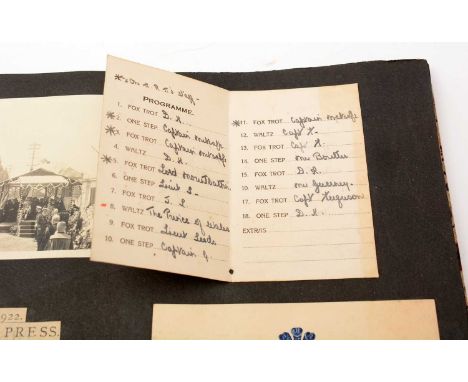 * On H.R.H's Staff -
PROGRAMME.
1. FOX TROT D.H.
*2. ONE STEP Captain Metcalfe
*3. FOX TROT Captain Metcalfe
4. WALTZ D.H.
*5. FOX TROT Lord Mountbatten
6. ONE STEP Lieut S-
7. FOX TROT J.L
- 8. WALTZ The Prince of Wales
9. FOX TROT Lieut Leeds
10. ONE STEP Captain G.
*11. FOX TROT Captain Metcalfe
12. WALTZ Capt F.
13. FOX TROT Capt H.
14. ONE STEP Mr Boulter
15. FOX TROT D.H.
16. WALTZ Mr Guerney.
17. FOX TROT Capt Ferguson
18. ONE STEP D.H.
EXTRIS
1922.
PRESS.